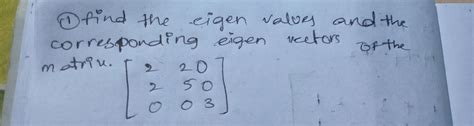 ① find the eigen values and the
corresponding eigen vectors of the
matrix. [ 2 2 0
2 5 0
0 0 3 ]